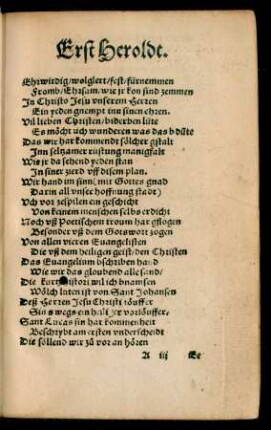 Erst Heroldt.
Ehrwirdig/wolglert/fest/fürnemmen
Fromb/Ehrsam/wie jr kon sind zemmen
In Christo Jesu vnserem Herren
Ein yeden gnempt inn sinen ehren.
Vil lieben Christen/biderben lüte
Es möcht üch wunderen was das bdüte
Das wir har kommend t sölcher gstalt
Inn seltzamer rüstung manigfalt
Wie jr da sehend yeden stan
In siner zierd vff disem plan.
Wir hand im sinn (mit Gottes gnad
Darin all vnser hoffnung stadt)
Vch vor zespilen ein geschicht
Von keinem menschen selbs erdicht
Noch vß Poetischem troum har gflogen
Besonder vß dem Gots wort zogen
Von allen vieren Euangelisten
Die vß dem heiligen geist den Christen
Das Euangelium bschriben hand
Wie wir das gloubend alle sand/
Die histori wil ich bnamsen
Wölch luten ist von Sant Johansen
Deß Herren Jesu Christi töuffer
Sins wegs ein heiliger vorlöuffer/
Sant Lucas sin har kommenheit
Beschrybt am ersten vnderscheidt
Die söllend wir zů vor an hören
A iij Be